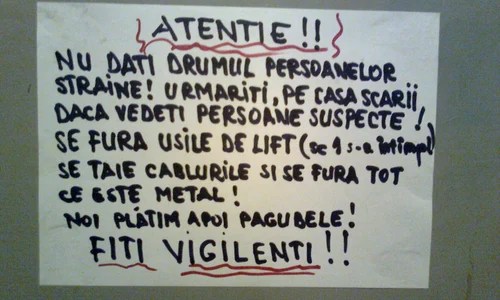 ATENTIE!!
NU DATI DRUMUL PERSOANELOR
STRAINE! URMARITI, PE CASA SCARII,
DACA VEDETI PERSOANE SUSPECTE!
SE FURA USILE DE LIFT (sc 1 s-a întimplat)
SE TAIE CABLURILE SI SE FURA TOT
CE ESTE METAL!
NOI PLATIM APOI PAGUBELE!
FITI VIGILENTI!!